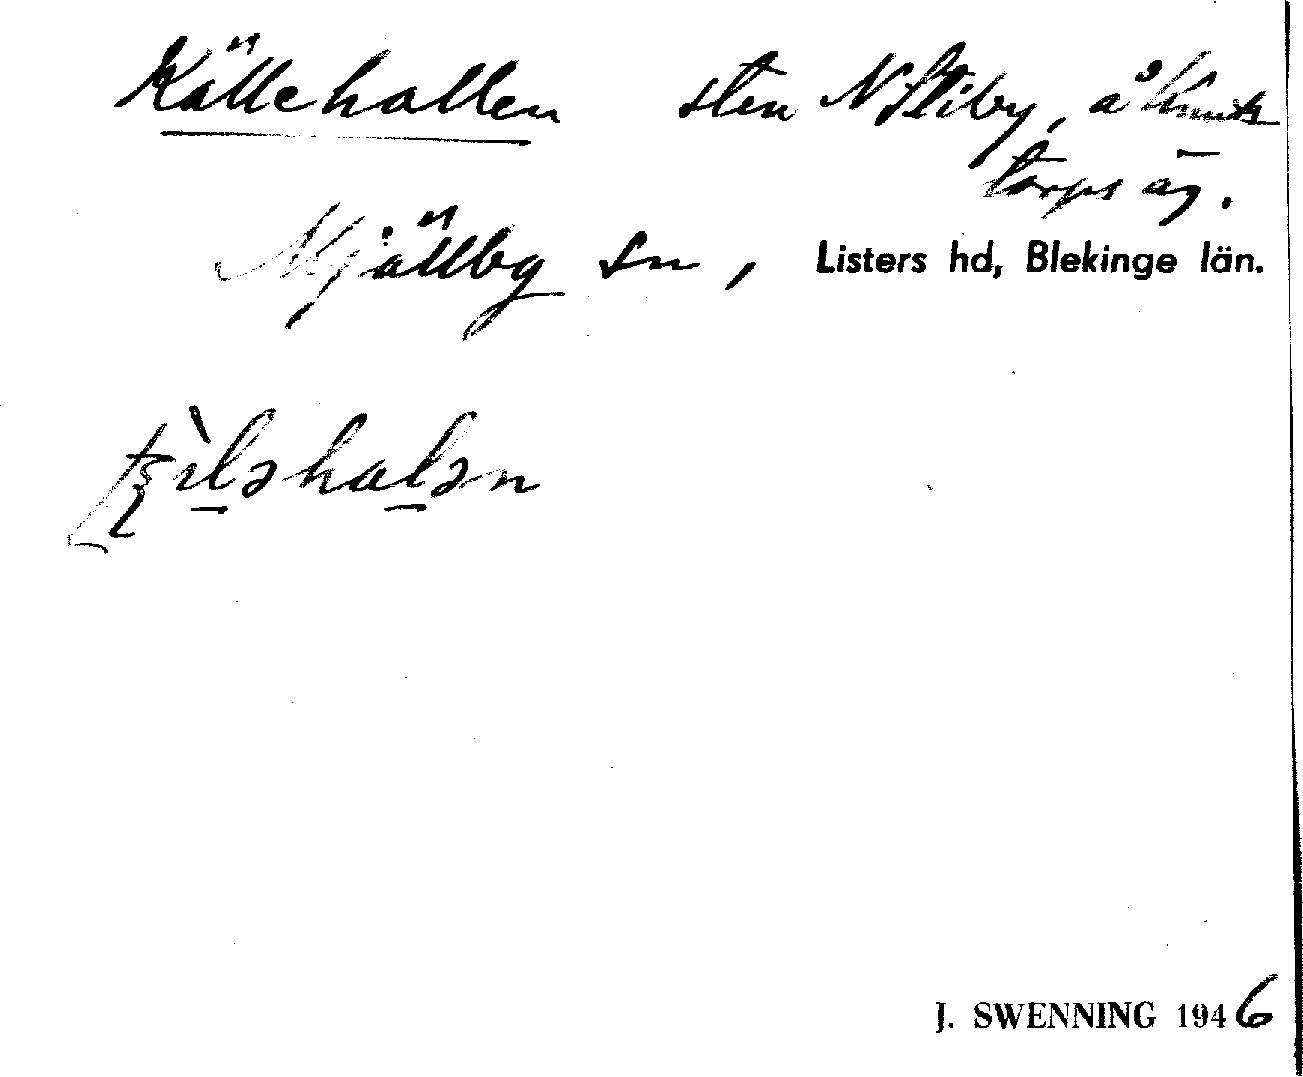 Källehallen sten N Stiby, å Knuts
torps äg.
Mjällby sn, Listers hd, Blekinge län.
J. SWENNING 1946